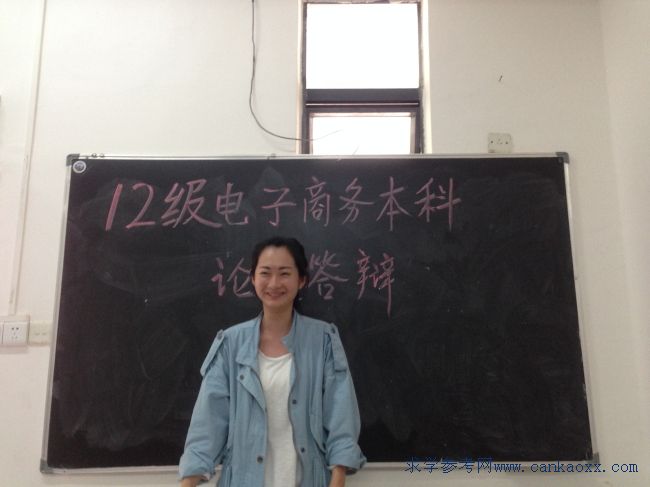 12级电子商务本科
论 答辩
求学参考网www.cankaoxx.com